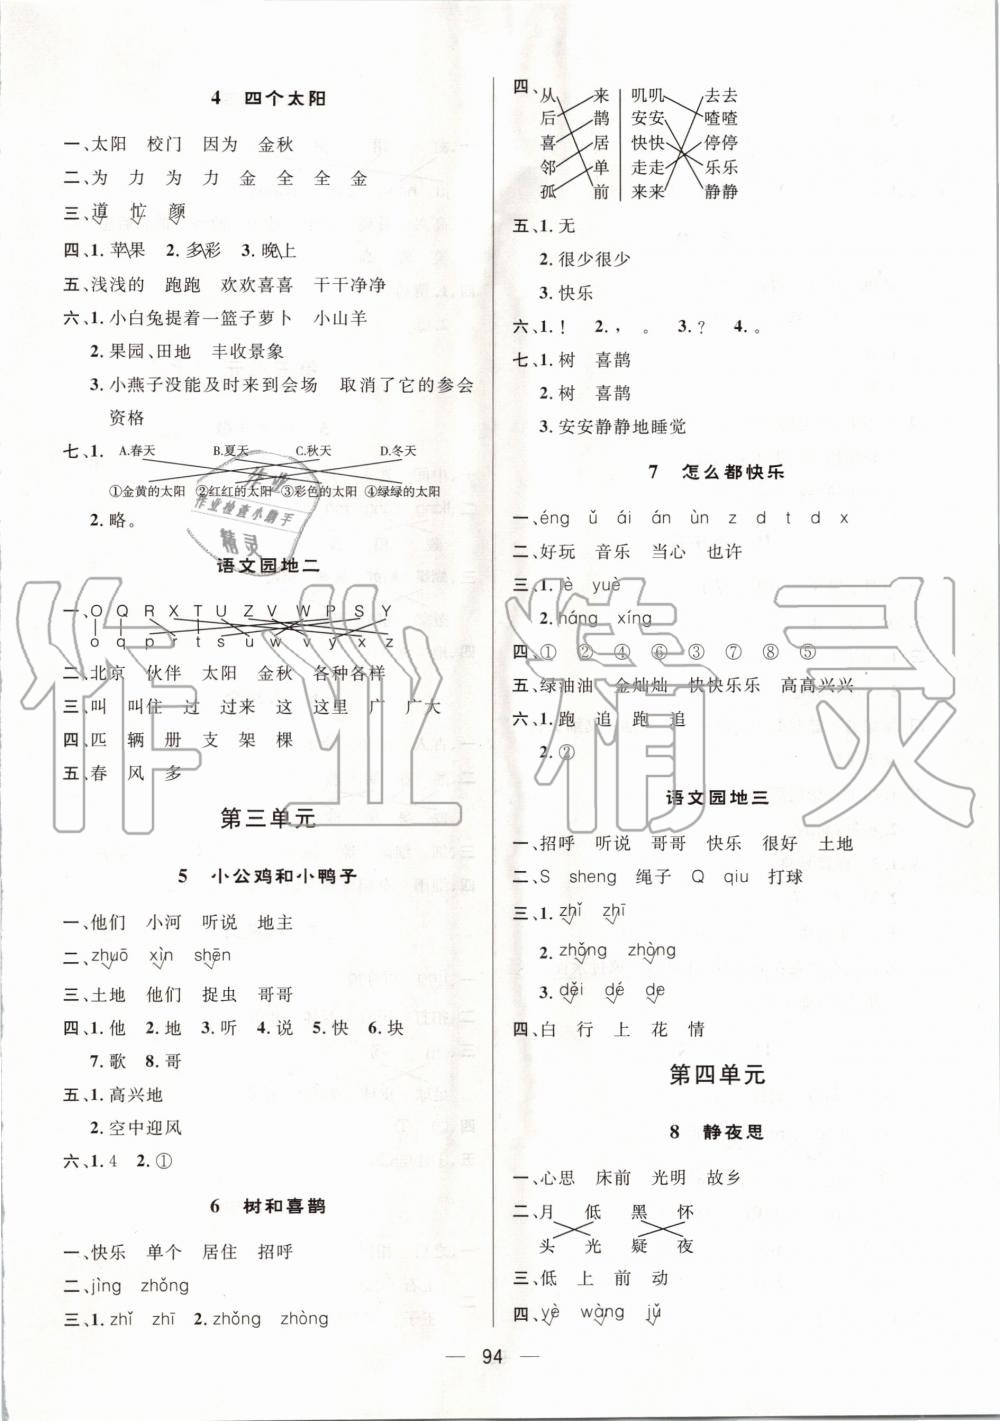 4 四个太阳
一、太阳 校门 因为 金秋
二、为 力 为 力 金 全 全 金
三、道 忙 颜
四、1. 苹果 2. 多彩 3. 晚上
五、浅浅的 跑跑 欢欢喜喜 干干净净
六、1. 小白兔提着一篮子萝卜 小山羊
2. 果园、田地 丰收景象
3. 小燕子没能及时来到会场 取消了它的参会
资格
七、1. A.春天 B.夏天 C.秋天 D.冬天
①金黄的太阳 ②红红的太阳 ③彩色的太阳 ④绿绿的太阳
2. 略。
语文园地二
一、O Q R X T U Z V W P S Y
o q p r t s u w v y x z
二、北京 伙伴 太阳 金秋 各种各样
三、叫 叫住 过 过来 这 这里 广 广大
四、匹 辆 册 支 架 棵
五、春 风 多
第三单元
5 小公鸡和小鸭子
一、他们 小河 听说 地主
二、zhuō xìn shēn
三、土地 他们 捉虫 哥哥
四、1. 他 2. 地 3. 听 4. 说 5. 快 6. 块
7. 歌 8. 哥
五、1. 高兴地
2. 空中迎风
六、1. 4 2. ①
6 树和喜鹊
一、快乐 单个 居住 招呼
二、jìng zhǒng
三、1. zhǐ zhī 2. zhǒng zhòng
四、从 来 叽叽 去去
后 鹊 安安 喳喳
喜 居 快快 停停
邻 单 走走 乐乐
孤 前 来来 静静
五、1. 无
2. 很少很少
3. 快乐
六、1. ！ 2. ， 。 3. ？ 4. 。
七、1. 树 喜鹊
2. 树 喜鹊
3. 安安静静地睡觉
7 怎么都快乐
一、éng ǔ ái án ùn z d t d x
二、好玩 音乐 当心 也许
三、1. lè yuè
2. háng xíng
四、① ② ④ ⑥ ③ ⑦ ⑧ ⑤
五、绿油油 金灿灿 快快乐乐 高高兴兴
六、1. 跑 追 跑 追
2. ②
语文园地三
一、招呼 听说 哥哥 快乐 很好 土地
二、S sheng 绳子 Q qiu 打球
三、1. zhǐ zhī
2. zhǒng zhòng
3. děi dé de
四、白 行 上 花 情
第四单元
8 静夜思
一、心思 床前 光明 故乡
二、月 低 黑 怀
头 光 疑 夜
三、低 上 前 动
四、yè wàng jǔ
94
作业
作业检查小帮手
精灵
作业精灵